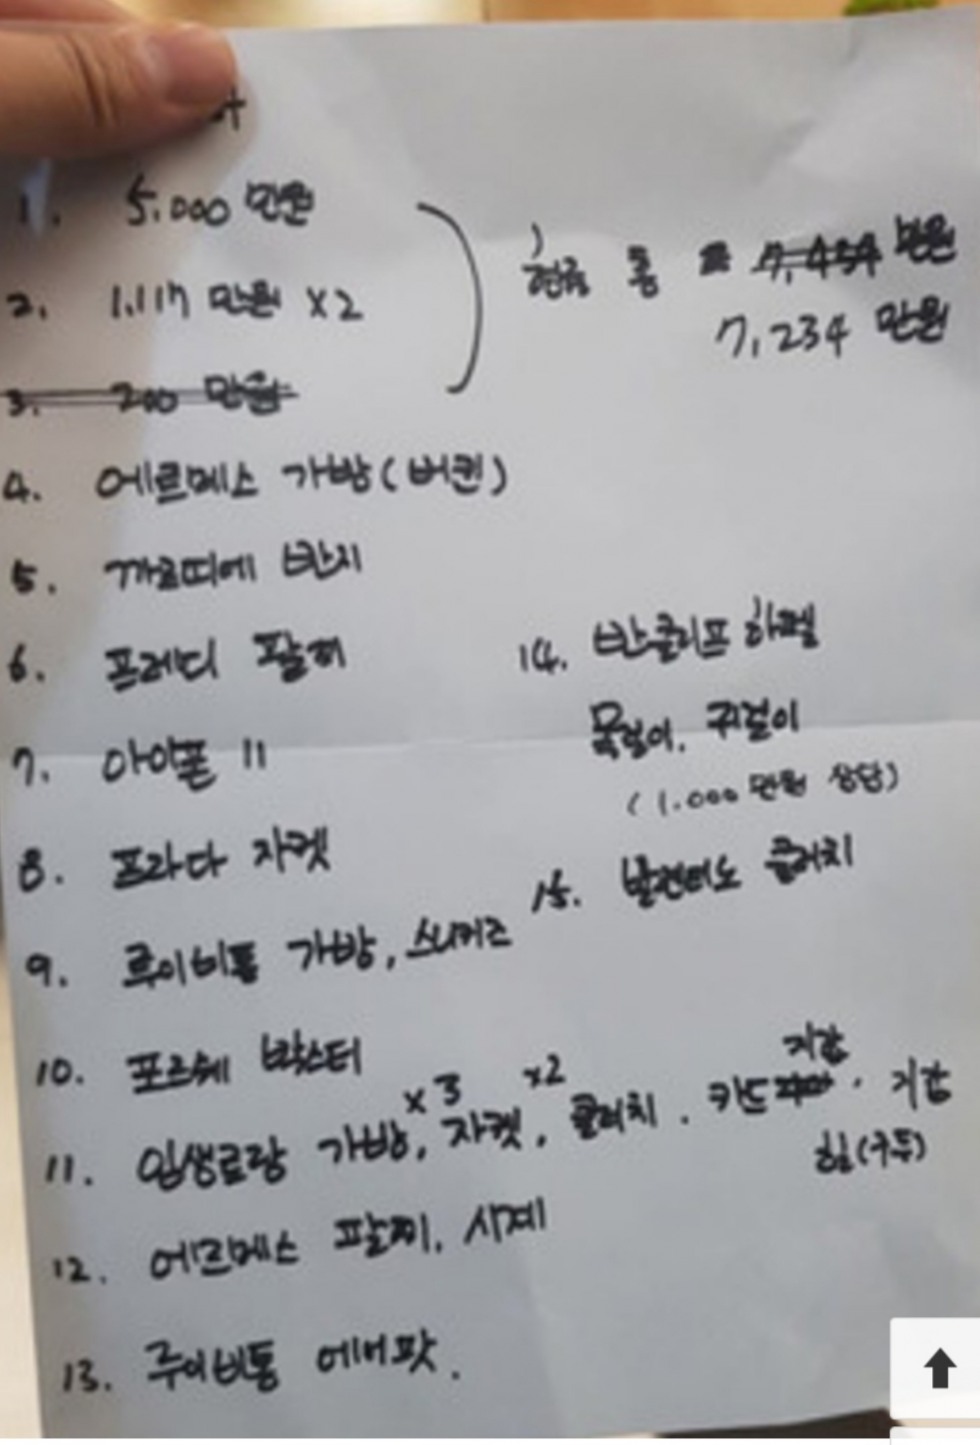 1. 5,000 만원
2. 1.117 만원 X2
3. 200 만원
현금 총 7,454 만원
7,234 만원
4. 에르메스 가방 (버킨)
5. 까르띠에 반지
6. 프레디 팔찌
7. 아이폰 11
8. 프라다 자켓
9. 루이비통 가방, 스니커즈
10. 포르쉐 박스터
11. 입생로랑 가방 x3, 자켓 x2, 클러치, 카드지갑, 지갑
힐(구두)
12. 에르메스 팔찌, 시계
13. 루이비통 에어팟.
14. 반클리프 아펠
목걸이, 귀걸이
(1.000 만원 상당)
15. 발렌티노 클러치